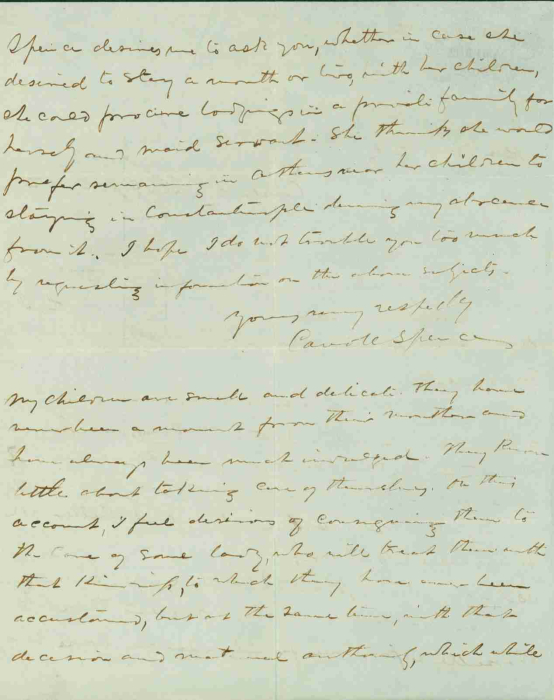 Spence desires me to ask you, whether in case she
desired to stay a month or two, with her children,
she could procure lodgings in a private family for
herself and maid servant. She thinks she would
prefer remaining in Athens near her children to
staying in Constantinople during my absence
from it. I hope I do not trouble you too much
by requesting information on the above subjects.
Yours very respctly
Carroll Spence
My children are small and delicate. They have
never been a moment from their mother and
have always been much indulged. They know
little about taking care of themselves. On this
account, I feel desirous of consigning them to
the care of some lady, who will treat them with
that kindness, to which they have ever been
accustomed, but at the same time, with that
decision and maternal authority, which while